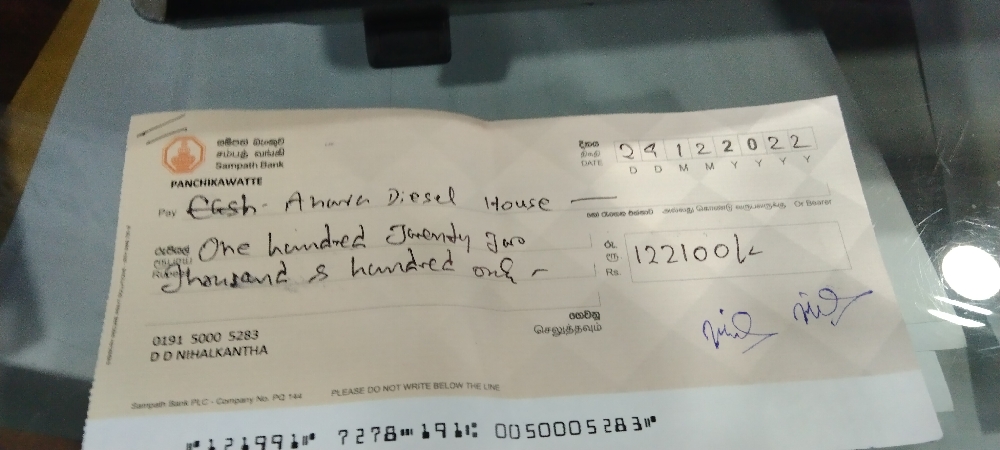 සම්පත් බැංකුව
சம்பத் வங்கி
Sampath Bank
PANCHIKAWATTE
දිනය
திகதி
DATE
2 4 1 2 2 0 2 2
D D M M Y Y Y Y
Pay Cash - Diesel House
Or Bearer
One hundred Twenty Two
Thousand & hundred only -
රු.
ரூ
Rs. 122100/-
ගෙවනු
செலுத்தவும்
0191 5000 5283
D D NIHALKANTHA
Sampath Bank PLC - Company No. PQ 144
PLEASE DO NOT WRITE BELOW THE LINE
121991 7278 191 0050005283